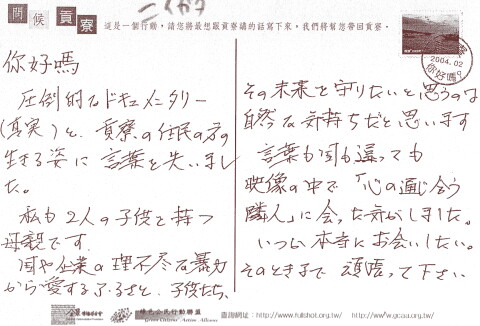 問候 貢寮
這是一個行動，請您將最想跟貢寮講的話寫下來，我們將幫您帶回貢寮。
2004.02
你好嗎。
你好嗎
圧倒的なドキュメンタリー
(真実)と、貢寮の住民の方の
生きる姿に言葉を失いまし
た。
私も2人の子供を持つ
母親です。
国や企業の理不尽な暴力
から愛するふるさと、子供たち、
その未来を守りたいと思うのは
自然な気持ちだと思います
言葉も国も違っても
映像の中で「心の通じ合う
隣人」に会った気がしました。
いつか本当にお会いしたい。
そのときまで頑張って下さい
綠色公民行動聯盟
Green Citizens' Action Alliance
查詢網址：http://www.fullshot.org.tw/ http://www.gcaa.org.tw/